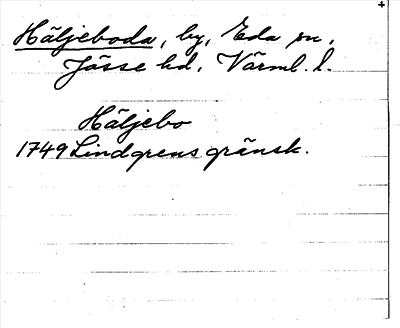 Häljeboda, by, Eda sn,
Jösse hd, Värml. l.
Häljebo
1749 Lindgrens gränsk.